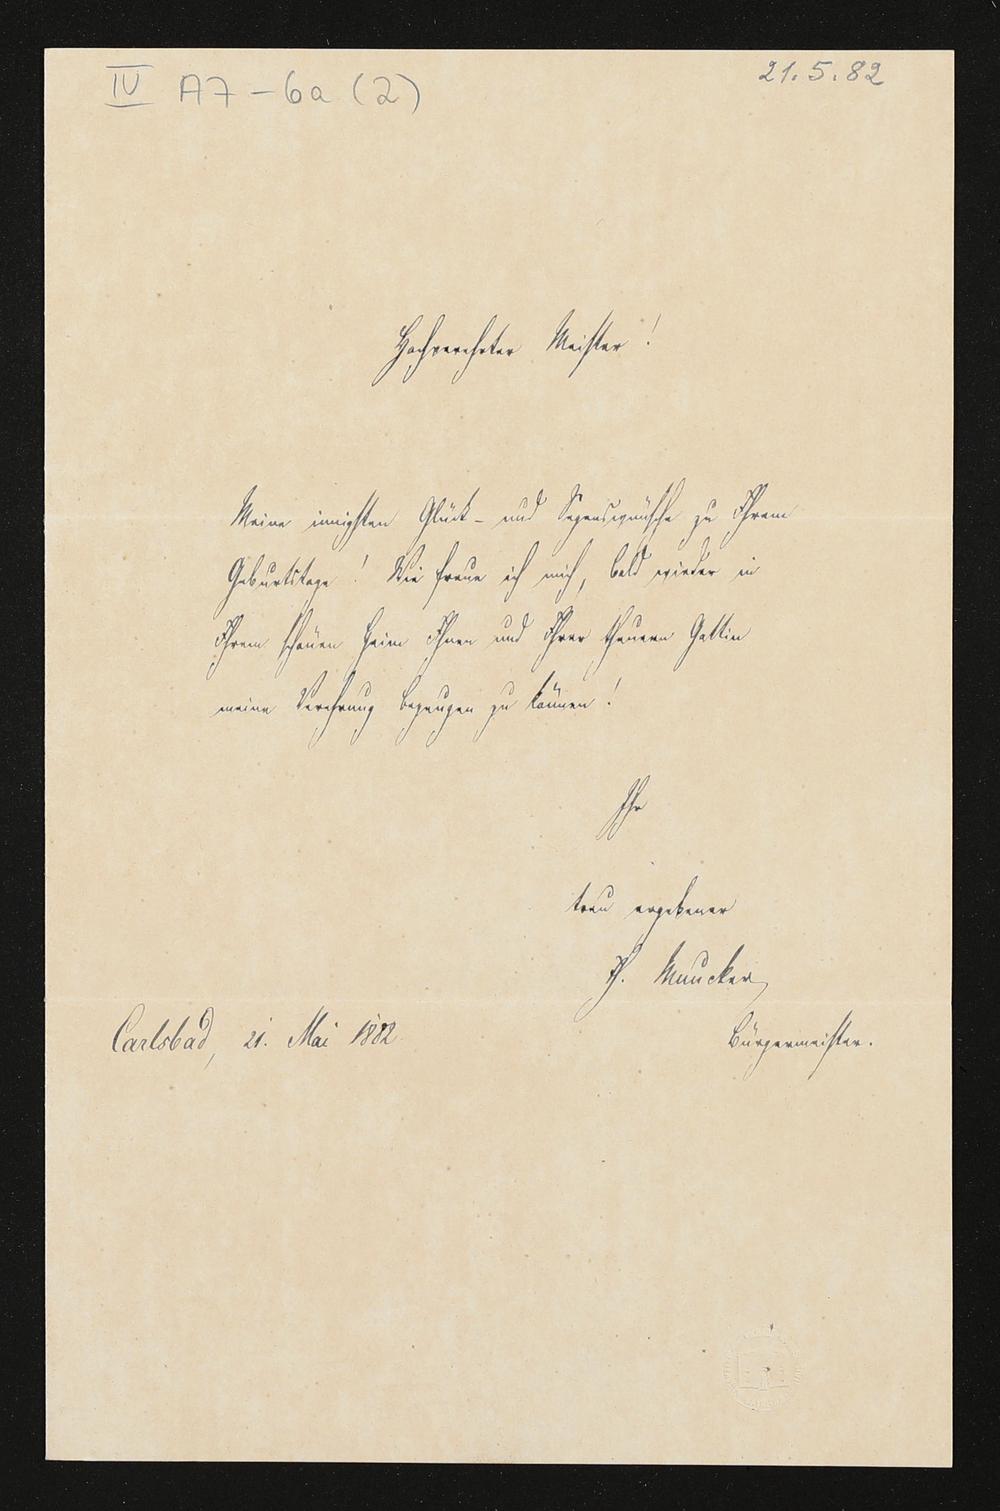 IV A7-6a (2)
21.5.82
Hochverehrter Meister!
Meine innigsten Glück- und Segenswünsche zu Ihrem
Geburtstage! Wie freue ich mich, bald wieder in
Ihrem schönen Heim Ihnen und Ihrer theueren Gattin
meine Verehrung bezeugen zu können!
Ihr
treu ergebener
Th. Muncker
Carlsbad, 21. Mai 1882
Bürgermeister.